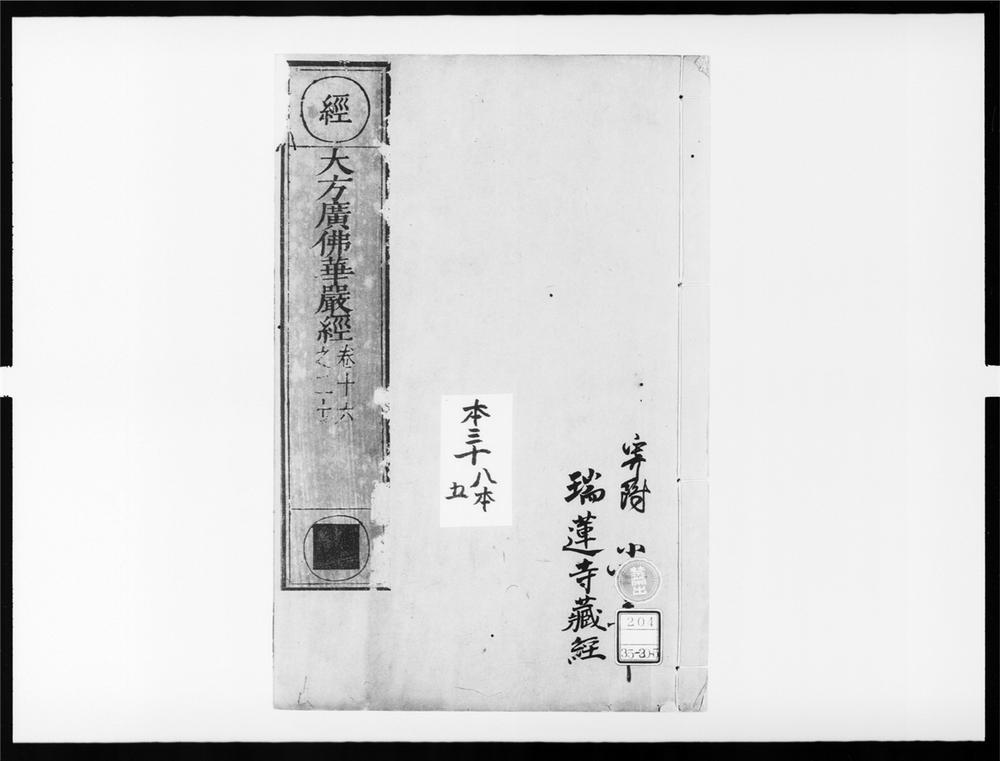 寄附 小
瑞蓮寺藏經
204
35-205
本三十八本
五
經
大方廣佛華嚴經
卷十六
之二十